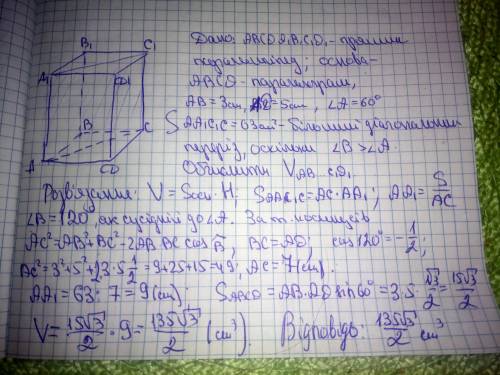 B₁ C₁
A₁ D₁
B C
A D
Дано: ABCDA₁B₁C₁D₁ - прямий
паралелепіпед; основа-
ABCD - паралелограм,
AB=3см, AD=5см, ∠A=60°
S AA₁C₁C=63см²- більший діагональний
переріз, оскільки ∠B>∠A.
Обчислити V AB...CD₁
Розв'язання: V=Sосн·H; SAA₁C₁C=AC·AA₁; AA₁=S/AC
∠B=120°, як сусідній до ∠A. За т. косинусів
AC²=AB²+BC²-2AB·BC cos B, BC=AD; cos120°=-1/2;
AC²=3²+5²+2·3·5·1/2=9+25+15=49; AC=7(см)
AA₁=63:7=9(см); SABCD=AB·AD sin60°=3·5·√3/2=15√3/2
V=15√3/2·9=135√3/2 (см³) Відповідь: 135√3/2 см³